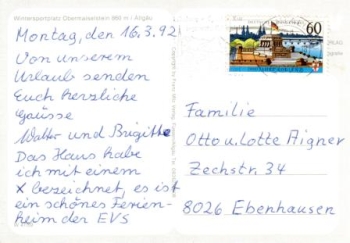 Wintersportplatz Obermaiselstein 859 m · Allgäu
Montag, den 16.3.92
Von unserem
Urlaub senden
Euch herzliche
Gaüsse
Walter und Brigitte
Das Haus habe
ich mit einem
X bezeichnet, es ist
ein schönes Ferien-
heim der EVS
60
Familie
Otto u. Lotte Aigner
Zechstr. 34
8026 Ebenhausen